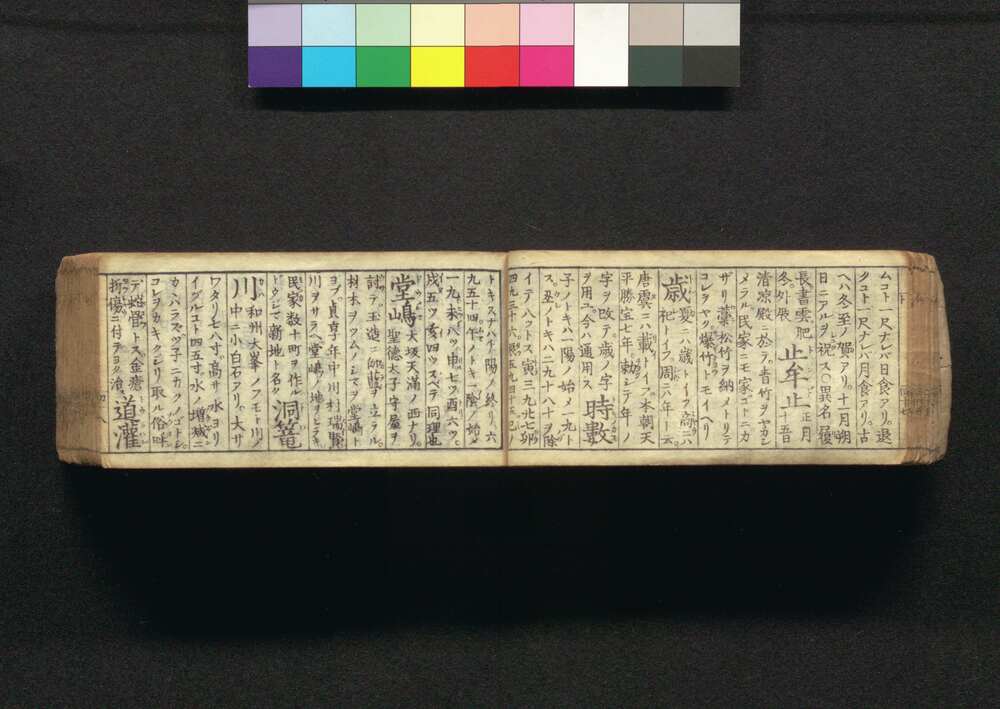 ムコト一尺ナレバ日食アリ。退
クコト一尺ナレバ月食アリ。古
ヘハ冬至ノ賀アリ。十一月朔
日ニアルヲ祝ス。異名履
長書雲肥 止牟止 正月十五
冬外展
清涼殿ニ於テ青竹ヲヤカシ
メラル民家ニモ家ゴトニカ
ザリ藁松竹ヲ納ノトリテ
コレヲヤク爆竹トモイヘリ
歳 夏ニハ歳トイフ。商ニハ
祀トイフ周ニハ年ト云
唐虞ニハ載トイフ。本朝天
平勝宝七年勅シテ年ノ
字ヲ改テ歳ノ字 時数
ヲ用ユ今ハ通用ス
子ノトキハ一陽ノ始メ一九ト
ス。丑ノトキハ二九十八十ヲ除
イテ八ツトス。寅三九廿七卯
四九三十六。辰五九四十五巳ノ
トキ六九五十四陽ノ終リ。六
九五十四午ノトキ一陰ノ始メ
一九。未八ツ。申七ツ。酉六ツ。
戌五ツ。亥四ツ。スベテ同理也
堂嶋 大坂天満ノ西ナリ。
聖徳太子守屋ヲ
討テ玉造ニ御堂ヲ立ラル。
材木ヲツムノシマヲ堂嶋ト
ヨブ。貞享年中川村瑞軒
川ヲサラヘ堂嶋ノ地ヲヒラキ
民家数十町ヲ作ル 洞籠
トクシテ新地ト名ク
川 和州大峯ノフモト川
川中ニ小白石アリ。大サ
ワタリ七八寸。高サ水ヨリ
イヅルコト四五寸。水ノ増減ニ
カヽハラズツ子ニカクノゴトシ。
コレヲカキクジリ取ル俗呼
デ水骨トス金瘡 道灌
折傷ニ付テヨク治ス